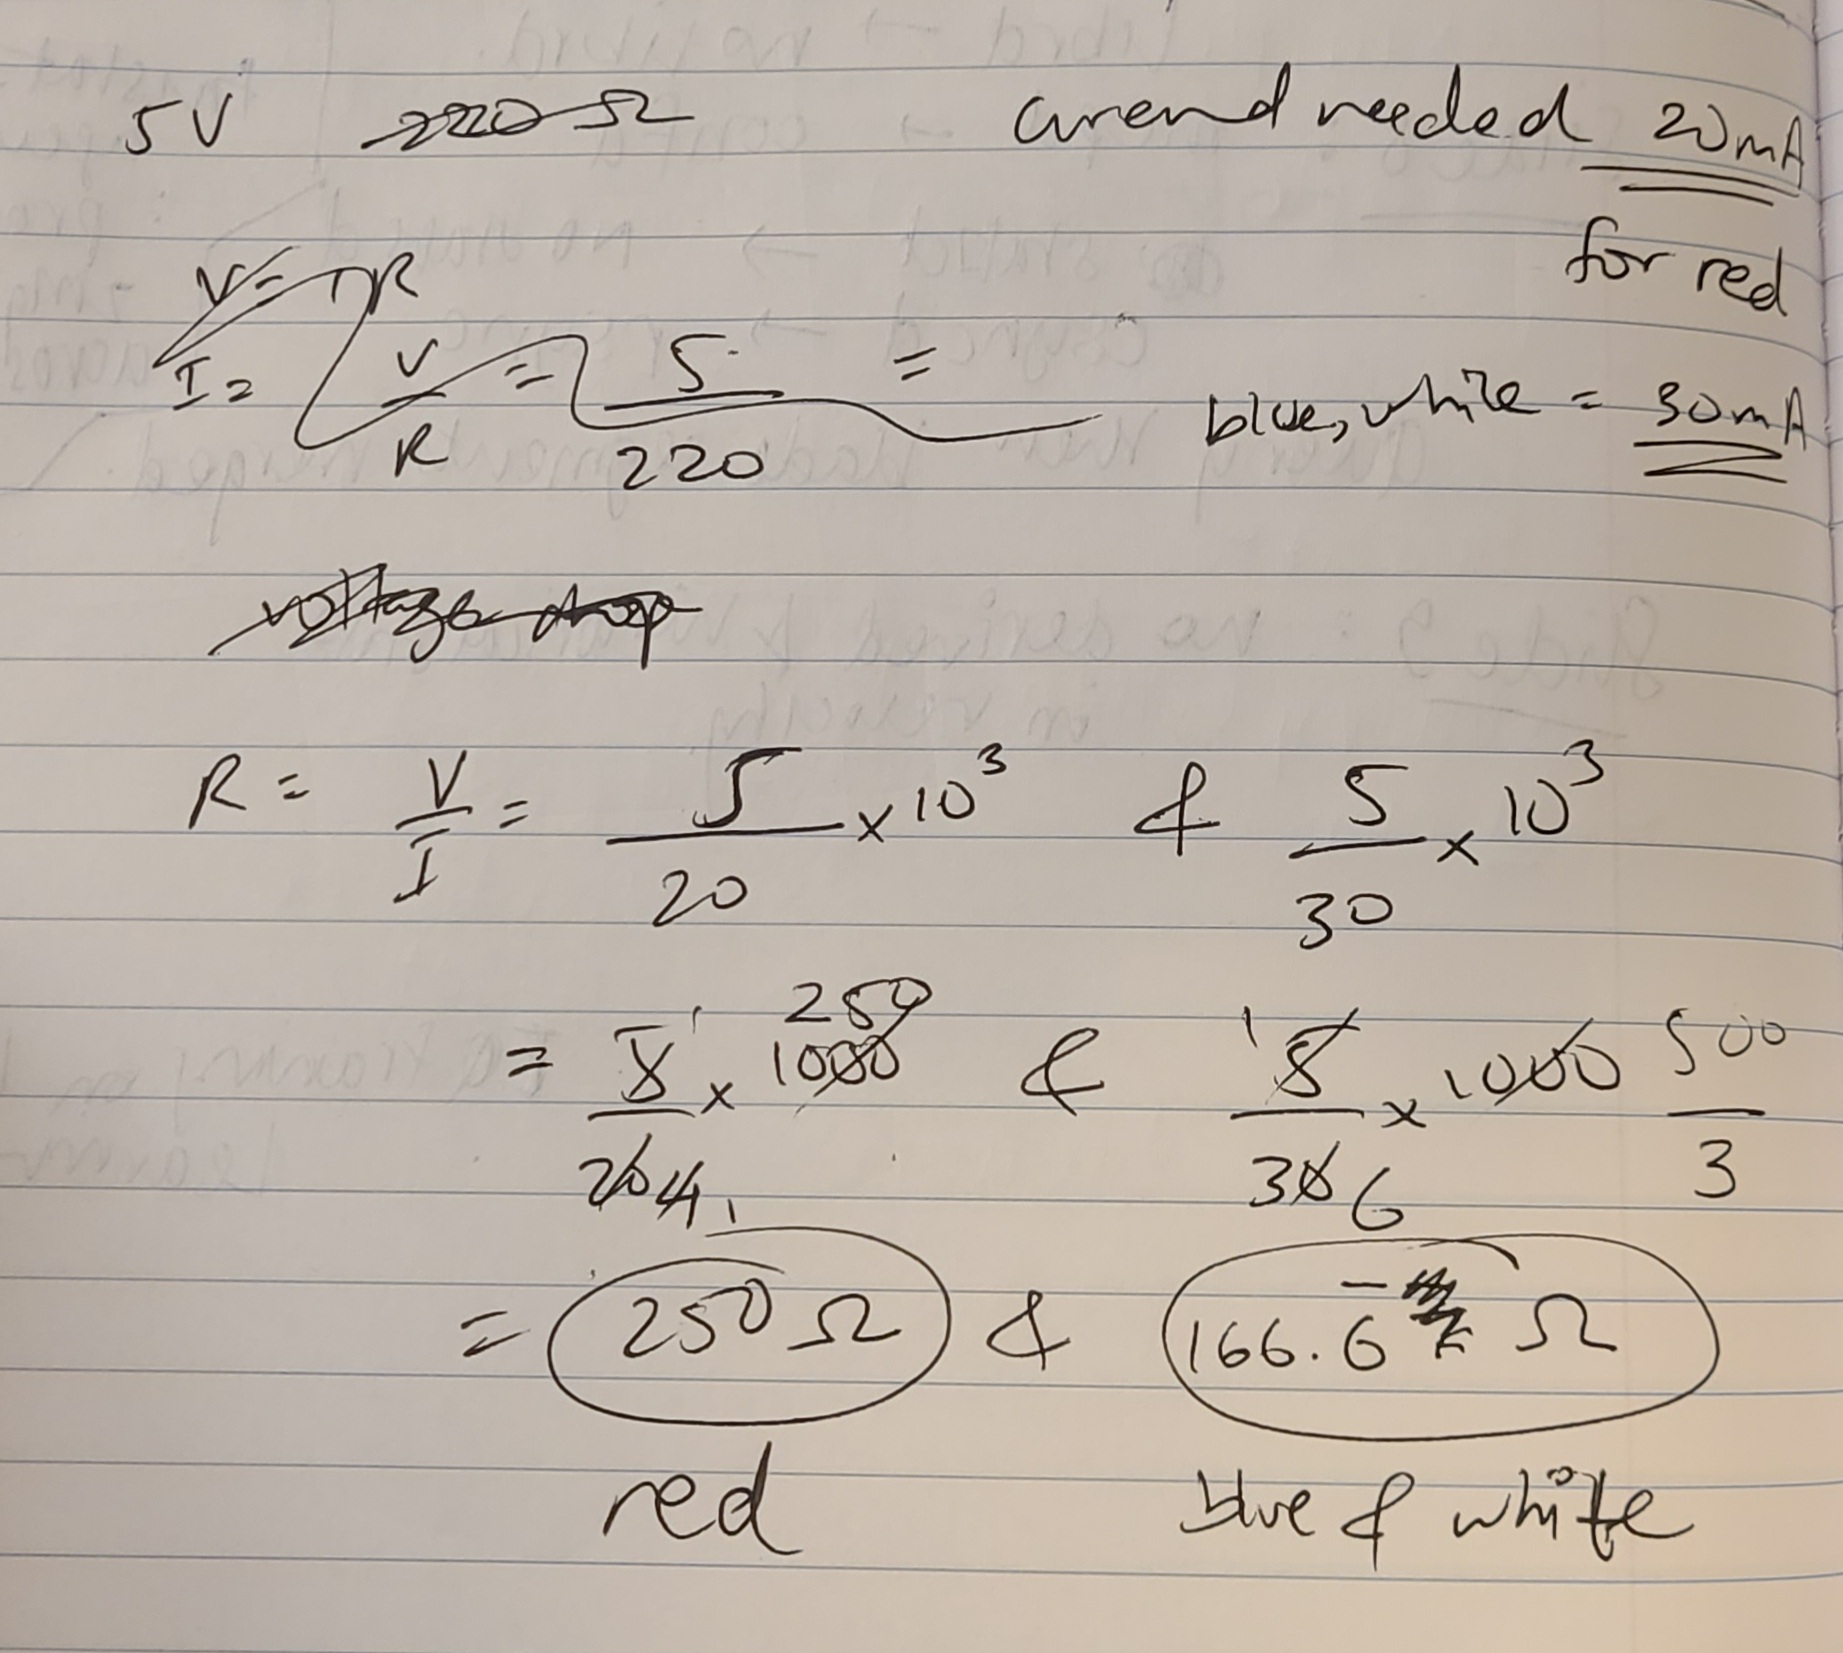 5V 220 Ω curend needed 20mA
for red
V = IR
I = V/R = 5/220 =
blue, white = 30mA
voltage drop
R = V/I = 5/20 × 10³ & 5/30 × 10³
= 5/20 × 1000 & 5/30 × 1000 500/3
1 250 4 1 1 6
= 250 Ω & 166.6̅ Ω
red blue & white